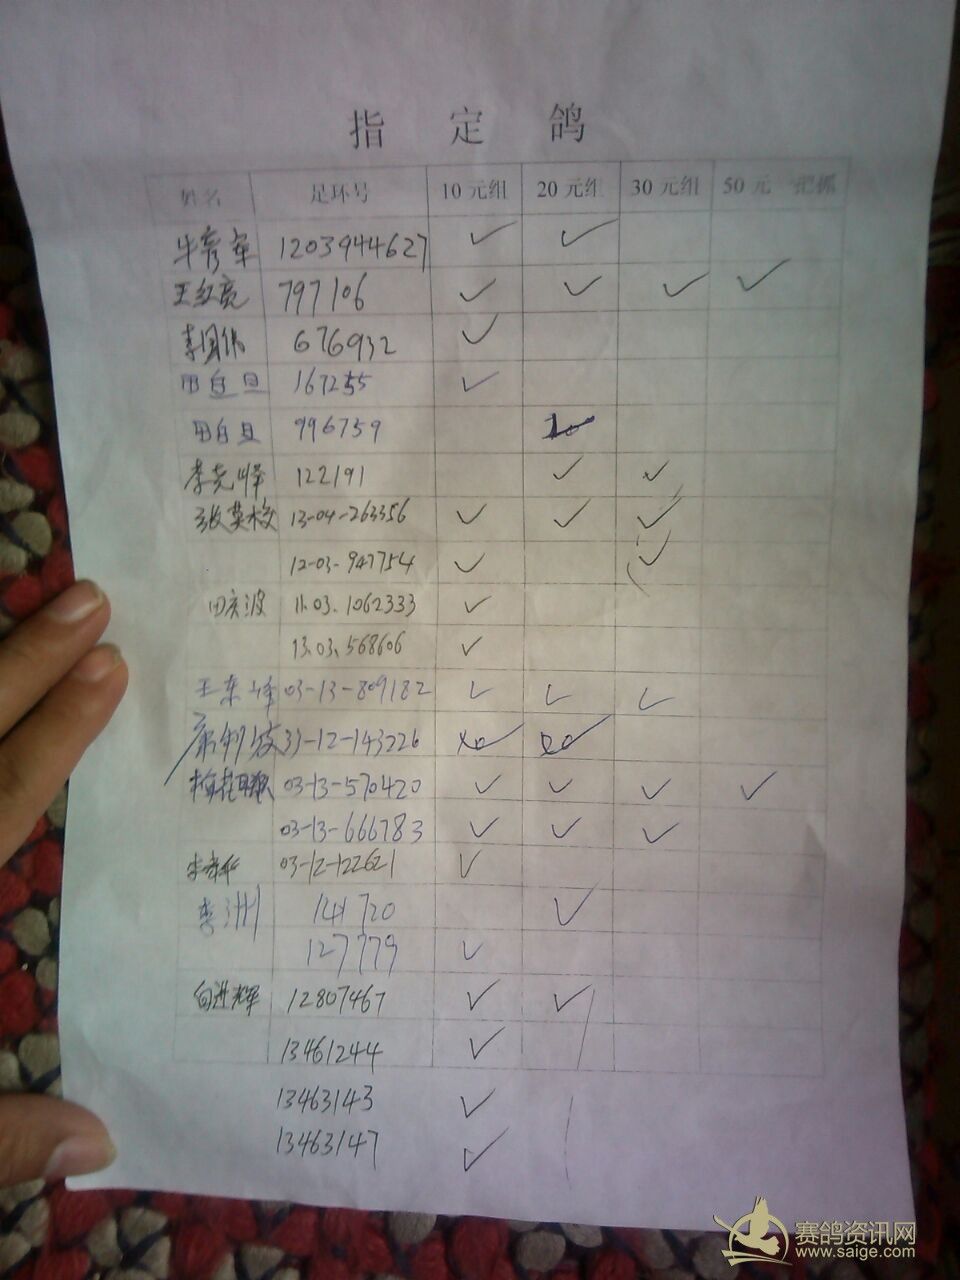 指定鸽
姓名 足环号 10元组 20元组 30元组 50元一把抓
牛秀军 1203944627 ✓ ✓
王红亮 797106 ✓ ✓ ✓ ✓
李国伟 676932 ✓
田自旦 167255 ✓
田自旦 996759
李克峰 122191 ✓ ✓
张英校 13-04-263356 ✓ ✓ ✓
12-03-947754 ✓ ✓
田庆波 11.03.1062333 ✓
13.03.568606 ✓
王东峰 03-13-809182 ✓ ✓ ✓
12-143226
03-13-570420 ✓ ✓ ✓ ✓
03-13-666783 ✓ ✓ ✓
03-12-122621 ✓
李洲 141720 ✓
127779 ✓
向进辉 12807467 ✓ ✓
13461244 ✓
13463143 ✓
13463147 ✓
赛鸽资讯网
www.saige.com